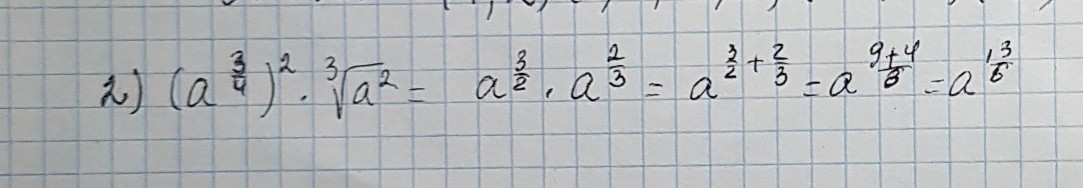 2) (a^{3/4})^2 · ∛a² = a^{3/2} · a^{2/3} = a^{3/2 + 2/3} = a^{(9+4)/6} = a^{13/6}